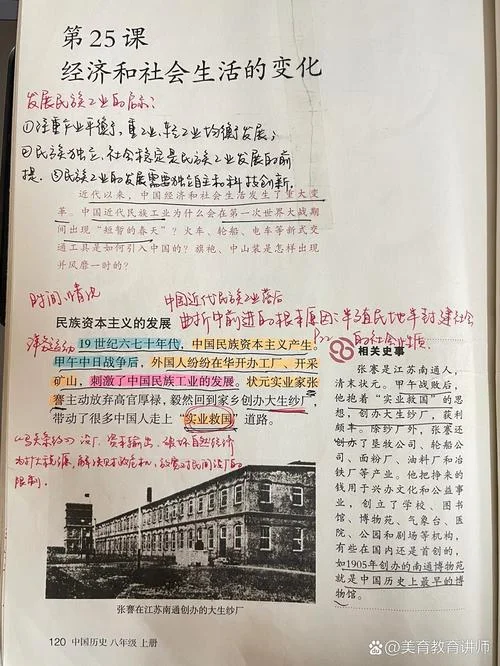 第25课
经济和社会生活的变化
发展民族工业的启示:
①注重产业平衡,重工业,轻工业均衡发展;
②民族独立,社会稳定是民族工业发展的前
提。③民族工业的发展需要独立自主和科技创新。
近代以来,中国经济和社会生活发生了重大变
革。中国近代民族工业为什么会在第一次世界大战期
间出现“短暂的春天”?火车、轮船、电车等新式交
通工具是如何引入中国的?旗袍、中山装是怎样出现
并风靡一时的?
时间、情况
中国近代民族工业落后
曲折中前进的根本原因:半殖民地半封建社会
的社会性质
民族资本主义的发展
洋务运动
19世纪六七十年代,中国民族资本主义产生。
甲午中日战争后,外国人纷纷在华开办工厂、开采
矿山,刺激了中国民族工业的发展。状元实业家张
謇主动放弃高官厚禄,毅然回到家乡创办大生纱厂,
带动了很多中国人走上“实业救国”道路。
《马关条约》设厂 资本输出,破坏自然经济
为扩大税源,解决财政危机,放宽对民间设厂的
限制。
相关史事
张謇是江苏南通人,
清末状元。甲午战败后,
他抱着“实业救国”的思
想,创办大生纱厂,获利
颇丰。除纱厂外,张謇还
创办了垦牧公司、轮船公
司、面粉厂、油料厂和冶
铁厂等产业。他把挣来的
钱用于兴办文化和公益事
业,创立了学校、图书
馆、博物苑、气象台、医
院、公园和剧场等机构,
有些在国内还是首创的,
如1905年创办的南通博物苑
就是中国历史上最早的博
物馆。
张謇在江苏南通创办的大生纱厂
120 中国历史 八年级 上册
美育教育讲师